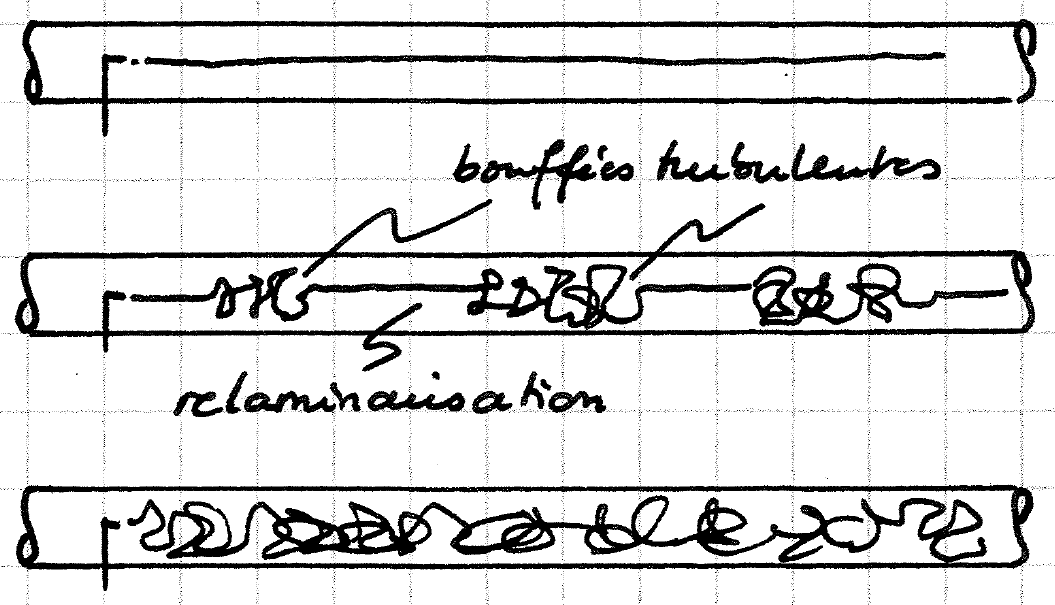 bouffées turbulentes
relaminarisation